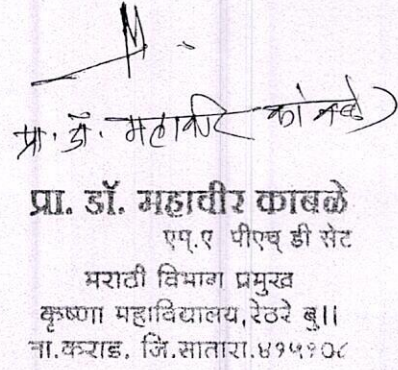 प्रा. डॉ. महावीर कांबळे)
प्रा. डॉ. महावीर कांबळे
एम्.ए पीएच् डी सेट
मराठी विभाग प्रमुख
कृष्णा महाविद्यालय,रेठरे बु॥
ता.कराड, जि.सातारा.४१५१०८